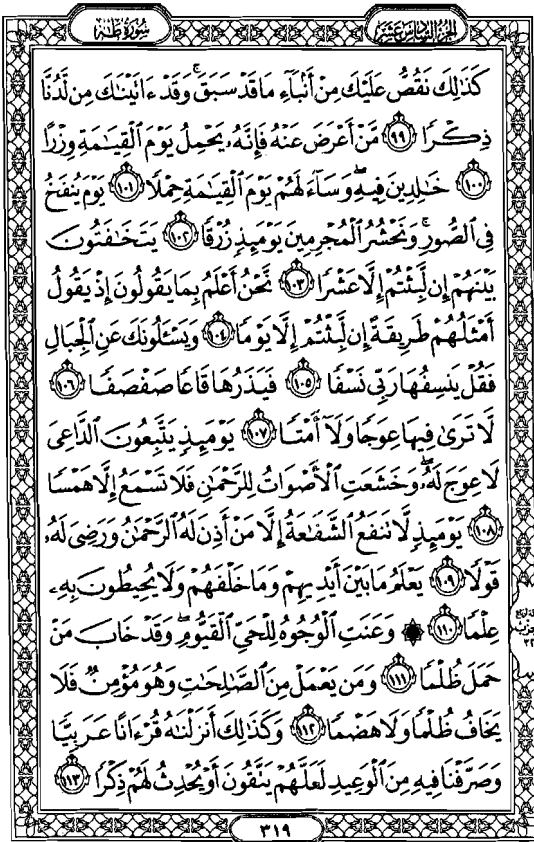 سُورَةُ طه
الجُزءُ السَّادِسَ عَشَرَ
كَذَٰلِكَ نَقُصُّ عَلَيْكَ مِنْ أَنۢبَآءِ مَا قَدْ سَبَقَ ۚ وَقَدْ ءَاتَيْنَٰكَ مِن لَّدُنَّا
ذِكْرًا ٩٩ مَّنْ أَعْرَضَ عَنْهُ فَإِنَّهُۥ يَحْمِلُ يَوْمَ ٱلْقِيَٰمَةِ وِزْرًا
١٠٠ خَٰلِدِينَ فِيهِ ۖ وَسَآءَ لَهُمْ يَوْمَ ٱلْقِيَٰمَةِ حِمْلًا ١٠١ يَوْمَ يُنفَخُ
فِى ٱلصُّورِ ۚ وَنَحْشُرُ ٱلْمُجْرِمِينَ يَوْمَئِذٍ زُرْقًا ١٠٢ يَتَخَٰفَتُونَ
بَيْنَهُمْ إِن لَّبِثْتُمْ إِلَّا عَشْرًا ١٠٣ نَّحْنُ أَعْلَمُ بِمَا يَقُولُونَ إِذْ يَقُولُ
أَمْثَلُهُمْ طَرِيقَةً إِن لَّبِثْتُمْ إِلَّا يَوْمًا ١٠٤ وَيَسْـَٔلُونَكَ عَنِ ٱلْجِبَالِ
فَقُلْ يَنسِفُهَا رَبِّى نَسْفًا ١٠٥ فَيَذَرُهَا قَاعًا صَفْصَفًا ١٠٦
لَّا تَرَىٰ فِيهَا عِوَجًا وَلَآ أَمْتًا ١٠٧ يَوْمَئِذٍ يَتَّبِعُونَ ٱلدَّاعِىَ
لَا عِوَجَ لَهُۥ ۖ وَخَشَعَتِ ٱلْأَصْوَاتُ لِلرَّحْمَٰنِ فَلَا تَسْمَعُ إِلَّا هَمْسًا
١٠٨ يَوْمَئِذٍ لَّا تَنفَعُ ٱلشَّفَٰعَةُ إِلَّا مَنْ أَذِنَ لَهُ ٱلرَّحْمَٰنُ وَرَضِىَ لَهُۥ
قَوْلًا ١٠٩ يَعْلَمُ مَا بَيْنَ أَيْدِيهِمْ وَمَا خَلْفَهُمْ وَلَا يُحِيطُونَ بِهِۦ
عِلْمًا ١١٠ ۞ وَعَنَتِ ٱلْوُجُوهُ لِلْحَىِّ ٱلْقَيُّومِ ۖ وَقَدْ خَابَ مَنْ
حَمَلَ ظُلْمًا ١١١ وَمَن يَعْمَلْ مِنَ ٱلصَّٰلِحَٰتِ وَهُوَ مُؤْمِنٌ فَلَا
يَخَافُ ظُلْمًا وَلَا هَضْمًا ١١٢ وَكَذَٰلِكَ أَنزَلْنَٰهُ قُرْءَانًا عَرَبِيًّا
وَصَرَّفْنَا فِيهِ مِنَ ٱلْوَعِيدِ لَعَلَّهُمْ يَتَّقُونَ أَوْ يُحْدِثُ لَهُمْ ذِكْرًا ١١٣
٣١٩